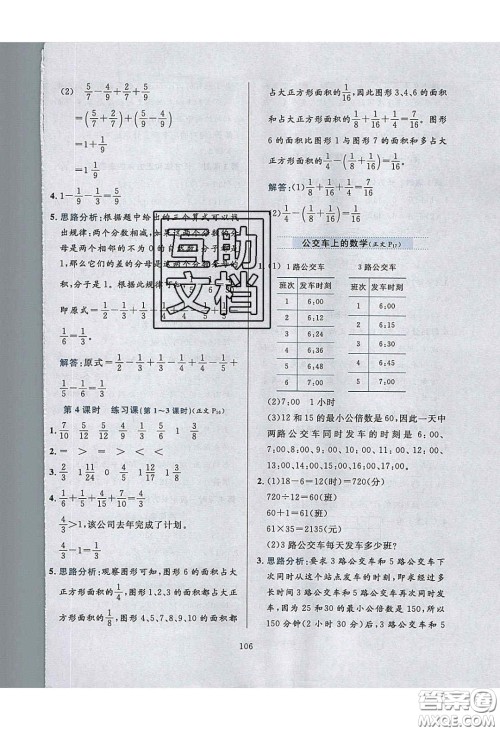 (2) 5/7-4/9+2/7+5/9
=(5/7+2/7)+(5/9-4/9)
=1+1/9
=1 1/9
4. 1-1/9-1/3=5/9
5. 思路分析:根据题中给出的三个算式可以找
出规律:两个分数相减,如果
母是两个相邻的不为0的自然数
1),那么它们的差的分母是
积,分子是1。根据此规律可
即原式=1/1-1/2+1/2-1/3
1/6=1/3。
解答:原式=1/2-1/3+1/3-1/4+1/4-1/5+1/5
-1/6=1/2-1/6=1/3
第4课时 练习课(第1~3课时)(正文P16)
2. = > < =
4/3>1,该公司去年完成了计划。
5. 思路分析:观察图形可知,图形6的面积占大
正方形面积的1/4,图形1、2、3的面积都占大
正方形面积的1/8,图形4、5的面积都
106
占大正方形面积的1/16,因此图形3、4、6的面
积和占大正方形面积的1/8+1/16+1/4,图形
6的面积比图形1与图形7的面积和多占大
正方形面积的1/4-(1/8+1/16)。
解答:(1)1/8+1/16+1/4=7/16
(2)1/4-(1/8+1/16)=1/16
公交车上的数学(正文P17)
1. (1) 1路公交车 3路公交车
班次 发车时刻 班次 发车时刻
1 6:00 1 6:00
2 6:12 2 6:15
3 6:24 3 6:30
4 6:36 4 6:45
5 6:48 5 7:00
6 7:00
(2)7:00 1小时
(3)12和15的最小公倍数是60,因此一天中
两路公交车同时发车的时刻是6:00、
7:00、8:00、9:00、10:00、11:00、12:00、
13:00、14:00、15:00、16:00、17:00、
18:00。
2. (1)18-6=12(时)=720(分)
720÷12=60(班)
60+1=61(班)
61×35=2135(元)
(2)3路公交车每天发车多少班?
3. 思路分析:要求3路公交车和5路公交车下
次同时从这个站点发车的时间需要过多
长时间,3路公交车和5路公交车再次同时发
车。因为30和50的最小公倍数是150,所以
150分钟(2小时30分)后,3路公交车和5
互助
文档
答案圈
MXQE.COM